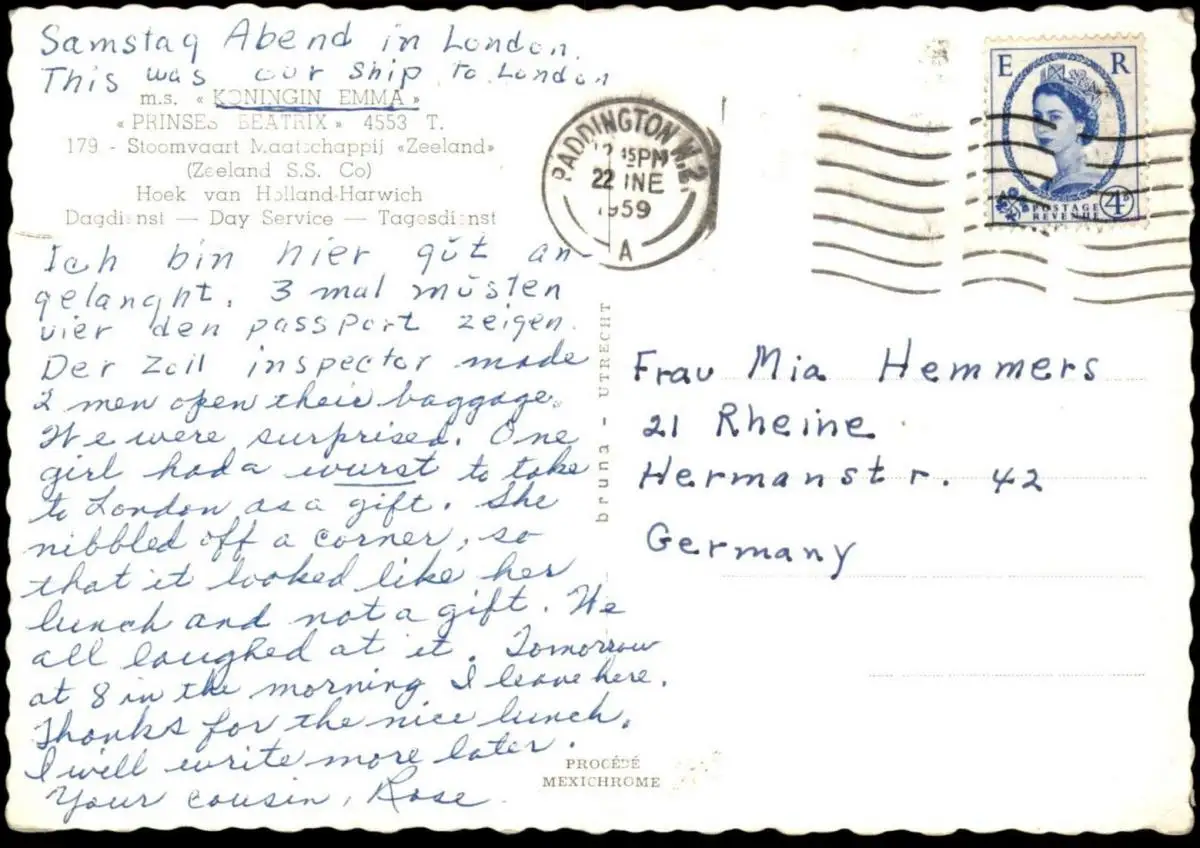 Samstag Abend in London.
This was our ship to London
m.s. « KONINGIN EMMA »
« PRINSES BEATRIX » 4553 T.
179 - Stoomvaart Maatschappij «Zeeland»
(Zeeland S.S. Co)
Hoek van Holland-Harwich
Dagdienst — Day Service — Tagesdienst
Ich bin hier gŭt an-
gelanght. 3 mal mŭsten
vier den passport zeigen.
Der Zoll inspector made
2 men open their baggage.
We were surprised. One
girl had a wurst to take
to London as a gift. She
nibbled off a corner, so
that it looked like her
lunch and not a gift. We
all laughed at it. Tomorrow
at 8 in the morning I leave here.
Thanks for the nice lunch.
I will write more later.
Your cousin, Rose.
bruna - UTRECHT
PROCÉDÉ
MEXICHROME
PADDINGTON W.2.
15PM
22 JNE
1959
A
E R
POSTAGE
REVENUE
4D
Frau Mia Hemmers
21 Rheine
Hermanstr. 42
Germany